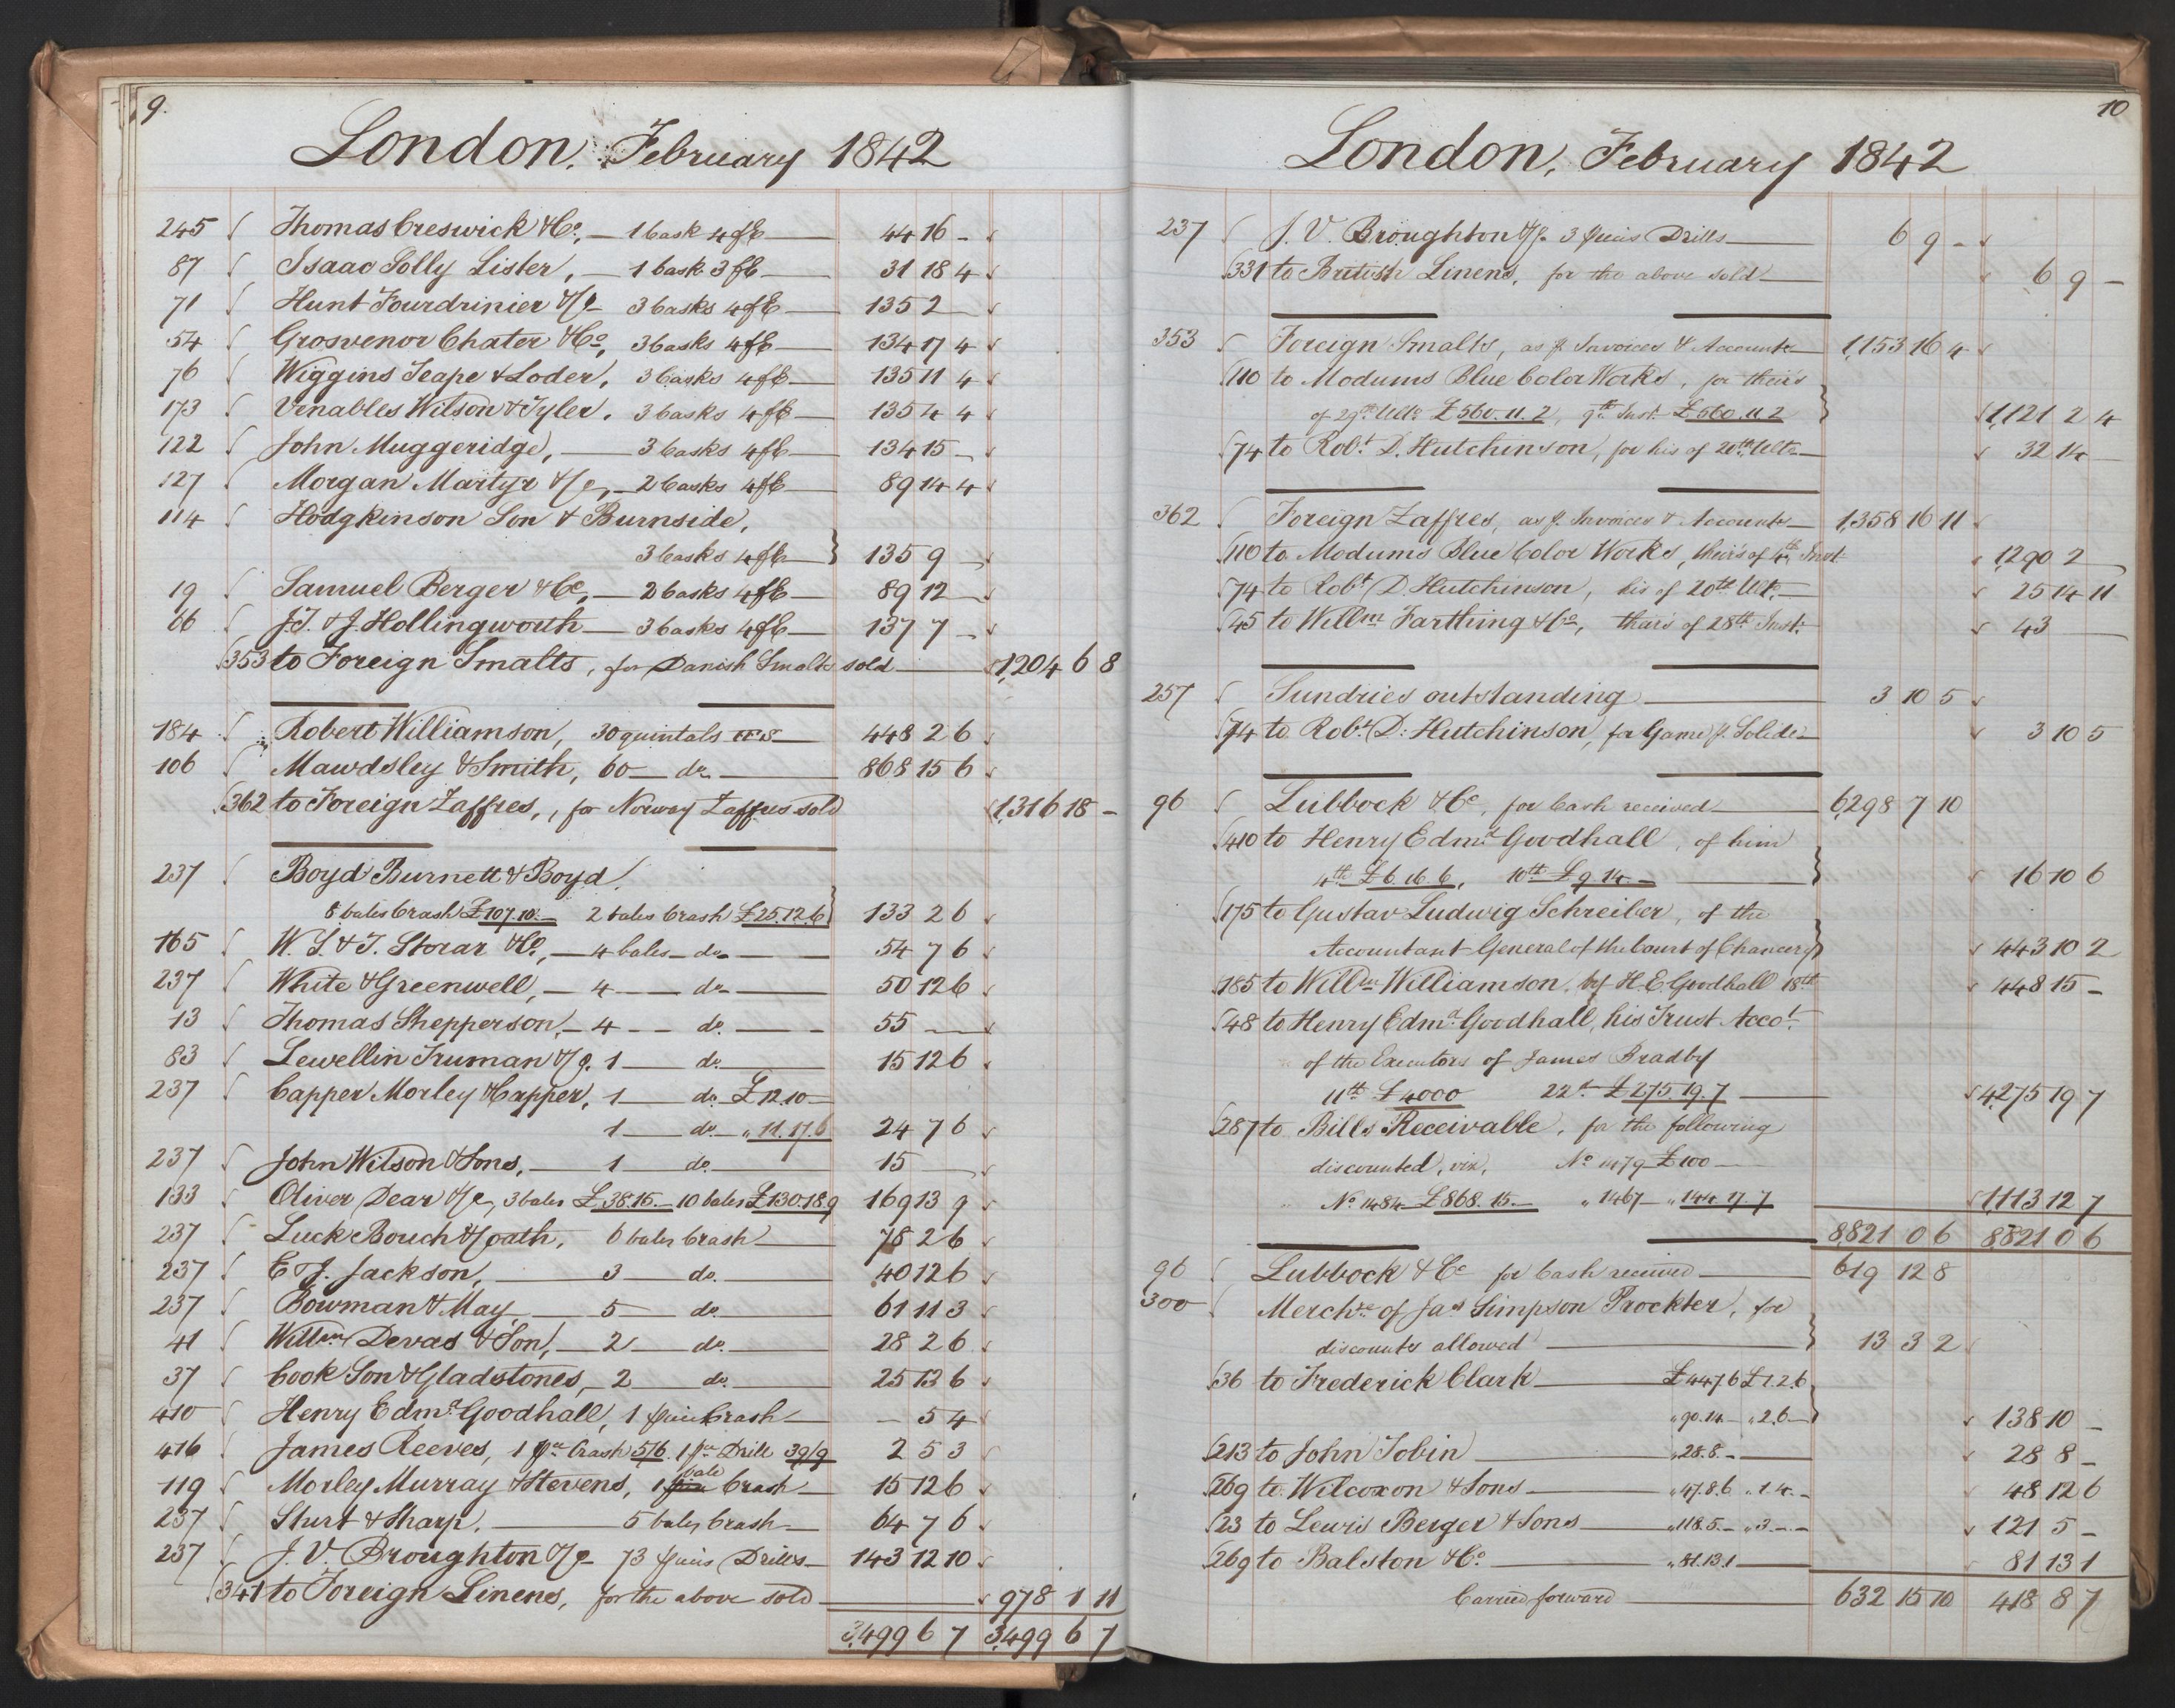 9.
London, February 1842
245 Thomas Creswick & Co, 1 Cask 4 ff C 44 16 -
87 Isaac Solly Lister, 1 Cask 3 ff C 31 18 4
71 Hunt Fourdrinier & Co 3 Casks 4 ff C 135 2 -
54 Grosvenor Chater & Co, 3 Casks 4 ff C 134 17 4
76 Wiggins Teape & Loder, 3 Casks 4 ff C 135 11 4
173 Venables Wilson & Tyler, 3 Casks 4 ff C 135 4 4
122 John Muggeridge, 3 Casks 4 ff C 134 15 -
127 Morgan Martyr & Co, 2 Casks 4 ff C 89 14 4
114 Hodgkinson Son & Burnside,
3 Casks 4 ff C 135 9 -
19 Samuel Berger & Co, 2 Casks 4 ff C 89 12 -
66 J.T. & J. Hollingworth 3 Casks 4 ff C 137 7 -
353 to Foreign Smalts, for Danish Smalts sold 1,204 6 8
184 Robert Williamson, 30 quintals 448 2 6
106 Mawdsley & Smith, 60 do 868 15 6
362 to Foreign Zaffres, for Norway Zaffres sold 1,316 18 -
237 Boyd Burnett & Boyd,
8 bales Crash £107.10.- 2 bales Crash £25.12.6 133 2 6
165 W. S. & T. Storar & Co, 4 bales do 54 7 6
237 White & Greenwell, 4 do 50 12 6
13 Thomas Shepperson, 4 do. 55 -
83 Lewellin Truman & Co. 1 do. 15 12 6
237 Capper Morley & Capper, 1 do. £12.10 -
1 do. " 11.17.6 24 7 6
237 John Wilson & Sons, 1 do. 15 -
133 Oliver Dear & Co, 3 bales £38.15.- 10 bales £130.18.9 169 13 9
237 Luck Bouch & Joath, 6 bales Crash 78 2 6
237 E & J. Jackson, 3 do. 40 12 6
237 Bowman & May, 5 do. 61 11 3
41 Willm Devas & Son, 2 do. 28 2 6
37 Cook Son & Gladstones, 2 do. 25 12 6
410 Henry Edmd Goodhall, 1 piece Crash - 5 4
416 James Reeves, 1 pce Crash 5/6. 1 pce Drill 39/9 2 5 3
119 Morley Murray & Stevens, 1 bale Crash 15 12 6
237 Sturt & Sharp, 5 bales Crash 64 7 6
237 J. V. Broughton & Co 73 pieces Drills 143 12 10
341 to Foreign Linens, for the above sold 978 1 11
3,499 6 7 3,499 6 7
10
London, February 1842
237 J. V. Broughton & Co 3 pieces Drills 6 9 -
331 to British Linens, for the above sold 6 9 -
353 Foreign Smalts, as p. Invoices & Accounts 1,153 16 4
110 to Modums Blue Color Works, for their's
of 29th Ulto £560.11.2, 9th Inst. £560.11.2 1,121 2 4
74 to Robt D. Hutchinson, for his of 20th Ulto 32 14 -
362 Foreign Zaffres, as p. Invoices & Accounts 1,358 16 11
110 to Modums Blue Color Works, their's of 4th Inst 1,290 2 -
74 to Robt D. Hutchinson, his of 20th Ult. 25 14 11
45 to Willm Farthing & Co, theirs of 28th Inst. 43 -
257 Sundries outstanding 3 10 5
74 to Robt D. Hutchinson, for Game p. Solide 3 10 5
96 Lubbock & Co, for Cash received 6,298 7 10
410 to Henry Edmd Goodhall, of him
4th £6.16.6, 10th £9.14.- 16 10 6
175 to Gustav Ludwig Schreiber, of the
Accountant General of the Court of Chancery 443 10 2
185 to Willm Williamson, by H. E. Goodhall 18th 448 15 -
48 to Henry Edmd Goodhall, his Trust Accot
of the Executors of James Bradby
11th £4000 22d £275.19.7 4,275 19 7
287 to Bills Receivable, for the following
discounted, viz, No 1479 £100 -
No 1484 £868.15.- " 1467 " 144.17.7 1,113 12 7
8,821 0 6 8,821 0 6
96 Lubbock & Co for Cash received 619 12 8
300 Merchze of Jas Simpson Prockter, for
discounts allowed 13 3 2
36 to Frederick Clark £44.7.6 £1.2.6
" 90.14 - " 2.6 - 138 10 -
213 to John Tobin " 28.8.- 28 8 -
269 to Wilcoxon & Sons " 47.8.6 " 1.4.- 48 12 6
23 to Lewis Berger & Sons " 118.5.- " 3.-.- 121 5 -
269 to Balston & Co " 81.13.1 81 13 1
Carried forward 632 15 10 418 8 7